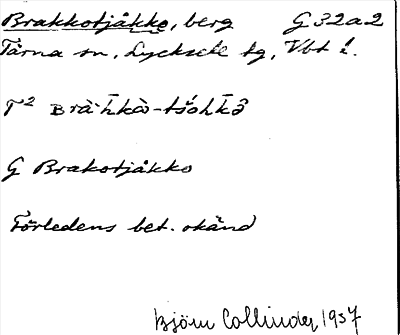 Brakkotjåkko, berg G 32a2
Tärna sn, Lycksele tg, Vbt l.
T² Brà·ħkàò-tśåhkå̂
G Brakotjåkko
Förledens bet. okänd
Björn Collinder 1937